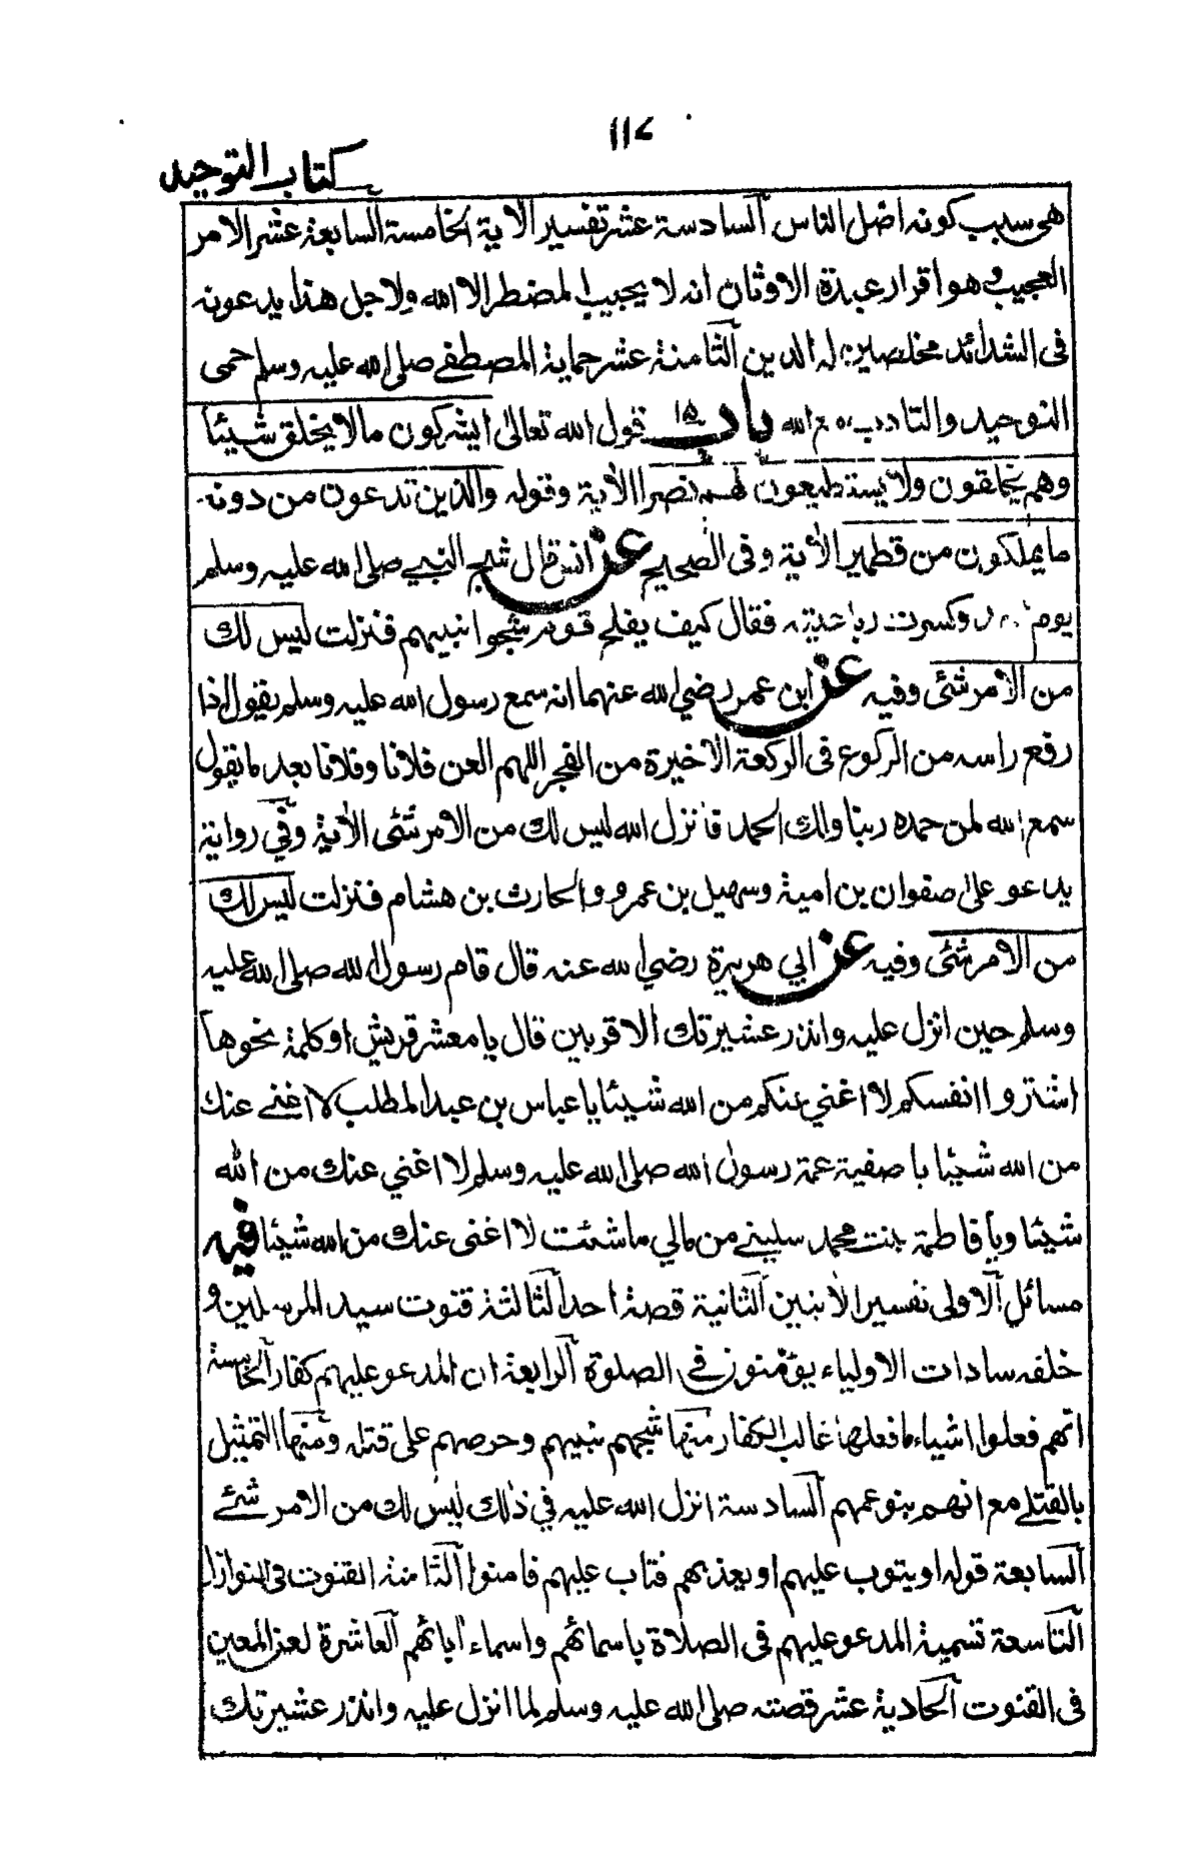 ١١٧
كتاب التوحيد
هي سبب كونه اضل الناس السادسة عشر تفسير الآية الخامسة السابعة عشر الامر
العجيب وهو اقرار عبدة الاوثان انه لا يجيب المضطر الا الله ولاجل هذا يدعونه
في الشدائد مخلصين له الدين الثامنة عشر حماية المصطفى صلى الله عليه وسلم حمى
التوحيد والتادب مع الله باب قول الله تعالى ايشركون ما لا يخلق شيئا
وهم يخلقون ولا يستطيعون لهم نصرا الآية وقوله والذين تدعون من دونه
ما يملكون من قطمير الآية وفي الصحيح عن انس قال شج النبي صلى الله عليه وسلم
يوم وكسرت رباعيته فقال كيف يفلح قوم شجوا نبيهم فنزلت ليس لك
من الامر شئ وفيه عن ابن عمر رضي الله عنهما انه سمع رسول الله عليه وسلم يقول اذا
رفع راسه من الركوع في الركعة الاخيرة من الفجر اللهم العن فلانا وفلانا بعد ما يقول
سمع الله لمن حمده ربنا ولك الحمد فانزل الله ليس لك من الامر شئ الآية وفي رواية
يدعو على صفوان بن امية وسهيل بن عمرو والحارث بن هشام فنزلت ليس لك
من الامر شئ وفيه عن ابي هريرة رضي الله عنه قال قام رسول الله صلى الله عليه
وسلم حين انزل عليه وانذر عشيرتك الاقربين قال يا معشر قريش او كلمة نحوها
اشتروا انفسكم لا اغني عنكم من الله شيئا يا عباس بن عبد المطلب لا اغني عنك
من الله شيئا يا صفية عمة رسول الله صلى الله عليه وسلم لا اغني عنك من الله
شيئا ويا فاطمة بنت محمد سليني من مالي ما شئت لا اغنى عنك من الله شيئا فيه
مسائل الاولى تفسير الآيتين الثانية قصة احد الثالثة قنوت سيد المرسلين و
خلفه سادات الاولياء يؤمنون في الصلوة الرابعة ان المدعو عليهم كفار الخامسة
انهم فعلوا اشياء ما فعلها غالب الكفار منها شجهم نبيهم وحرصهم على قتله ومنها التمثيل
بالقتلى مع انهم بنو عمهم السادسة انزل الله عليه في ذلك ليس لك من الامر شئ
السابعة قوله او يتوب عليهم او يعذبهم فتاب عليهم فامنوا الثامنة القنوت في النوازل
التاسعة تسمية المدعو عليهم في الصلاة باسمائهم واسماء آبائهم العاشرة لعن المعين
في القنوت الحادية عشر قصته صلى الله عليه وسلم لما انزل عليه وانذر عشيرتك